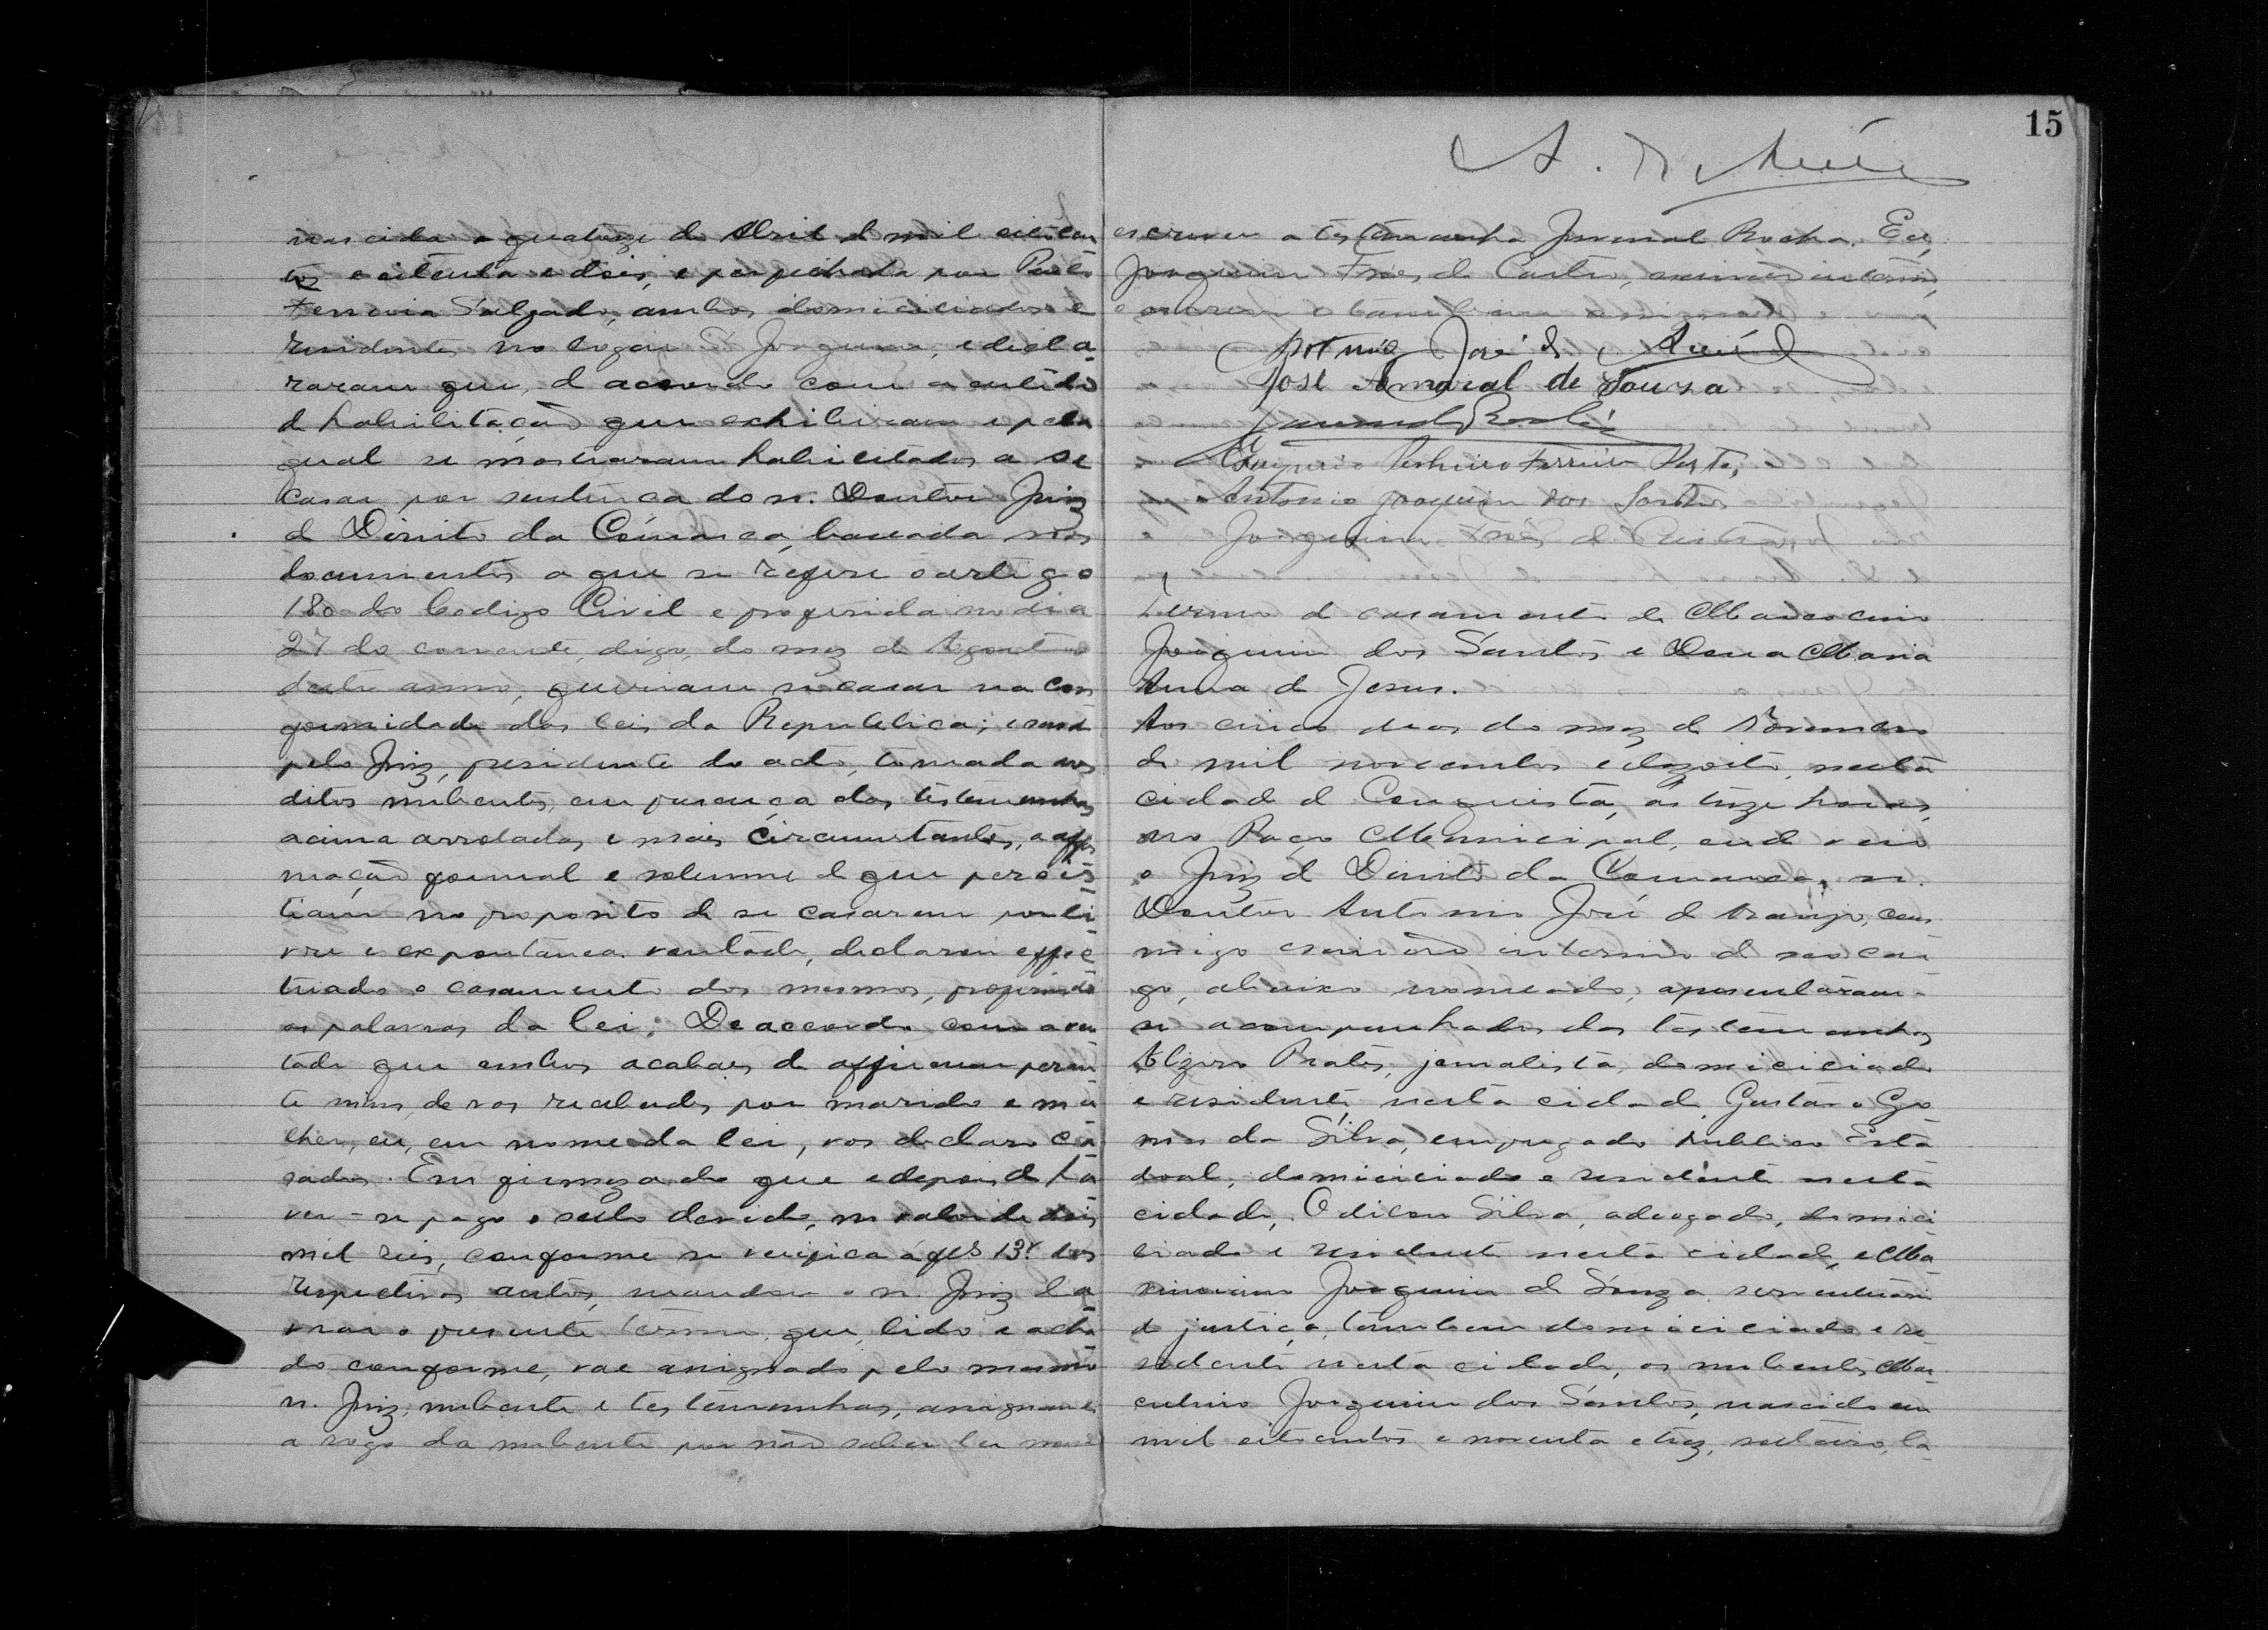 nascida a quatorze de Abril de mil oitocen
tos e oitenta e dois, e perfilhada por
Ferreira Salgado, ambos domiciliados e
residentes no logar S. Joaquim, e decla-
raram que, de acordo com a certidão
de habilitação que exhibiram e pela
qual se mostraram habilitados a se
casar por sentença do sr. Doutor Juiz
de Direito da Comarca, baseada nos
documentos a que se refere o artigo
180 do Codigo Civil e proferida no dia
27 do corrente, digo, do mez de Agosto
deste anno, queriam se casar na con
formidade das leis da Republica; e sendo
pelo Juiz, presidente do acto, tomada aos
ditos nubentes, em presença das testemunhas
acima arroladas e mais circumstantes, a affir
mação formal e solemne de que persis-
tiam no proposito de se casarem por li-
vre e expontanea vontade, declarou effec-
tuado o casamento dos mesmos, proferindo
as palavras da lei: De accordo com a von-
tade que ambos acabaes de affirmar peran-
te mim, de vos receberdes por marido e mu-
lher, eu, em nome da lei, vos declaro ca-
sados. Em firmeza do que e depois de ha-
ver-se pago o sello devido, no valor de dois
mil reis, conforme se verifica á fls 13v dos
respectivos autos, mandou o sr. Juiz la-
vrar o presente termo, que, lido e acha-
do conforme, vae assignado pelo mesmo
sr. Juiz, nubente e testemunhas, assignando
a rogo da nubente por não saber ler nem
15
escrever a testemunha Juvenal Rocha. Eu,
Joaquim Fróes de Castro, escrivão interino,
o escrevi e tambem assigno.
José de
José Amaral de Souza
Ferreira
Antonio Joaquim dos Santos
Joaquim Fróes de Castro
Termo de casamento de Marcolino
Joaquim dos Santos e Dona Maria
Anna de Jesus.
Aos cinco dias do mez de Novembro
de mil novecentos e dezoito, nesta
cidade de Conquista, ás treze horas,
no Paço Municipal, onde veio
o Juiz de Direito da Comarca, sr.
Doutor Antonio José de Araujo, com
migo escrivão interino de seo car
go, abaixo nomeado, apresentaram-
se acompanhados das testemunhas
Alziro Prates, jornalista, domiciliado
e residente nesta cidade, Gustavo Go
mes da Silva, empregado publico Esta
doal, domiciliado e residente nesta
cidade, Odilon Silva, advogado, domici
liado e residente nesta cidade, e Ma
ximino Joaquim de Souza, serventuario
de justiça, tambem domiciliado e re
sidente nesta cidade, os nubentes Mar
colino Joaquim dos Santos, nascido em
mil oitocentos e noventa e trez, solteiro, la-